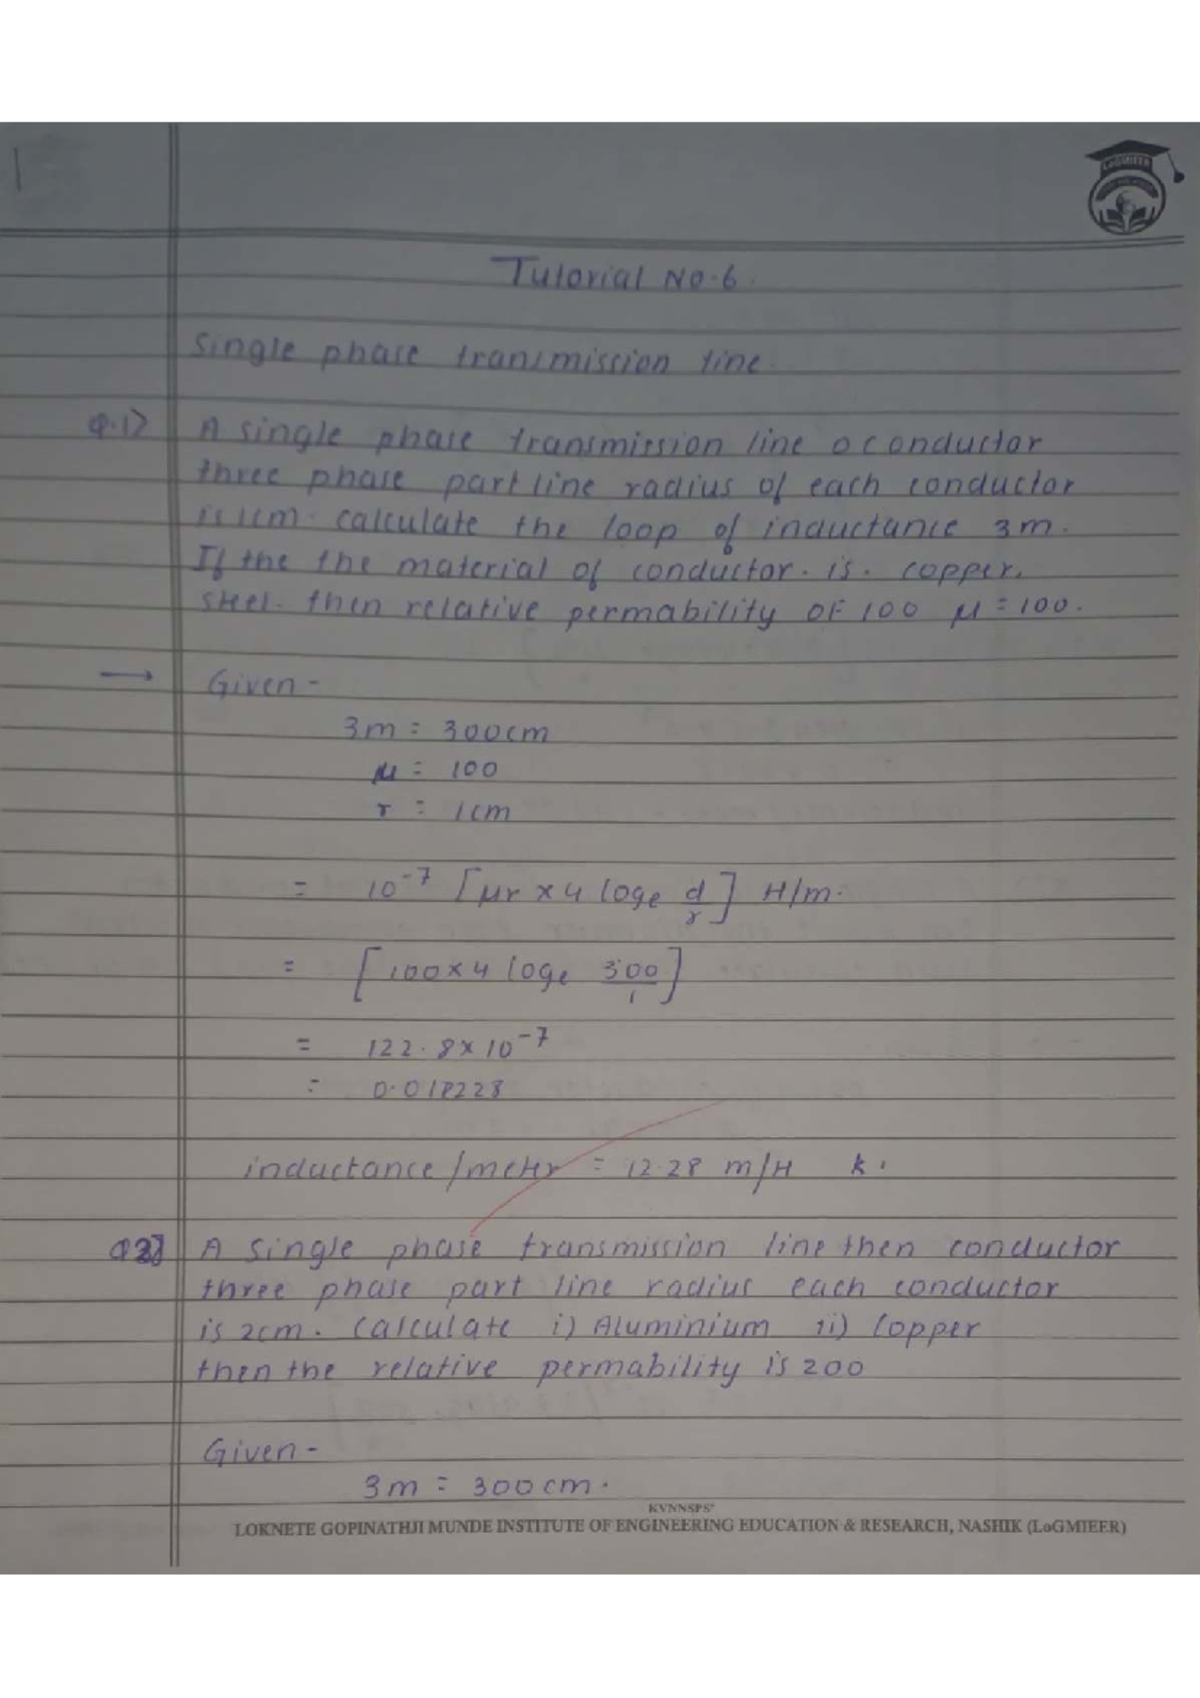 1
LoGMIEER
Tutorial No.6.
Single phase transmission line.
Q.1> A single phase transmission line o conductor
three phase part line radius of each conductor
is 1cm. calculate the loop of inductance 3m.
If the the material of conductor. is. copper.
steel. then relative permability OF 100 μ=100.
→ Given -
3m = 300cm
μ = 100
r = 1cm
= 10⁻⁷ [μr x 4 loge d/r] H/m.
= [100 x 4 loge 300/1]
= 122.8 x 10⁻⁷
= 0.01228
inductance/meter = 12.28 m/H K.
Q2] A single phase transmission line then conductor
three phase part line radius each conductor
is 2cm. Calculate i) Aluminium ii) Copper
then the relative permability is 200
Given -
3m = 300cm.
KVNNSPS'
LOKNETE GOPINATHJI MUNDE INSTITUTE OF ENGINEERING EDUCATION & RESEARCH, NASHIK (LoGMIEER)